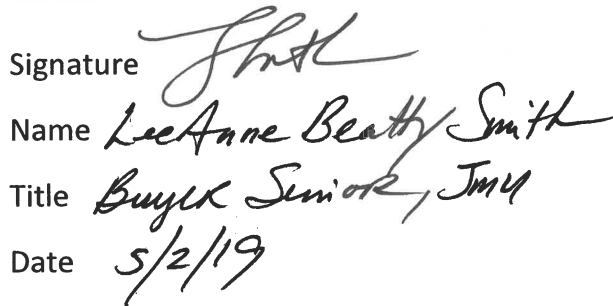 Signature
Name LeeAnne Beatty Smith
Title Buyer Senior, JMU
Date 5/2/19